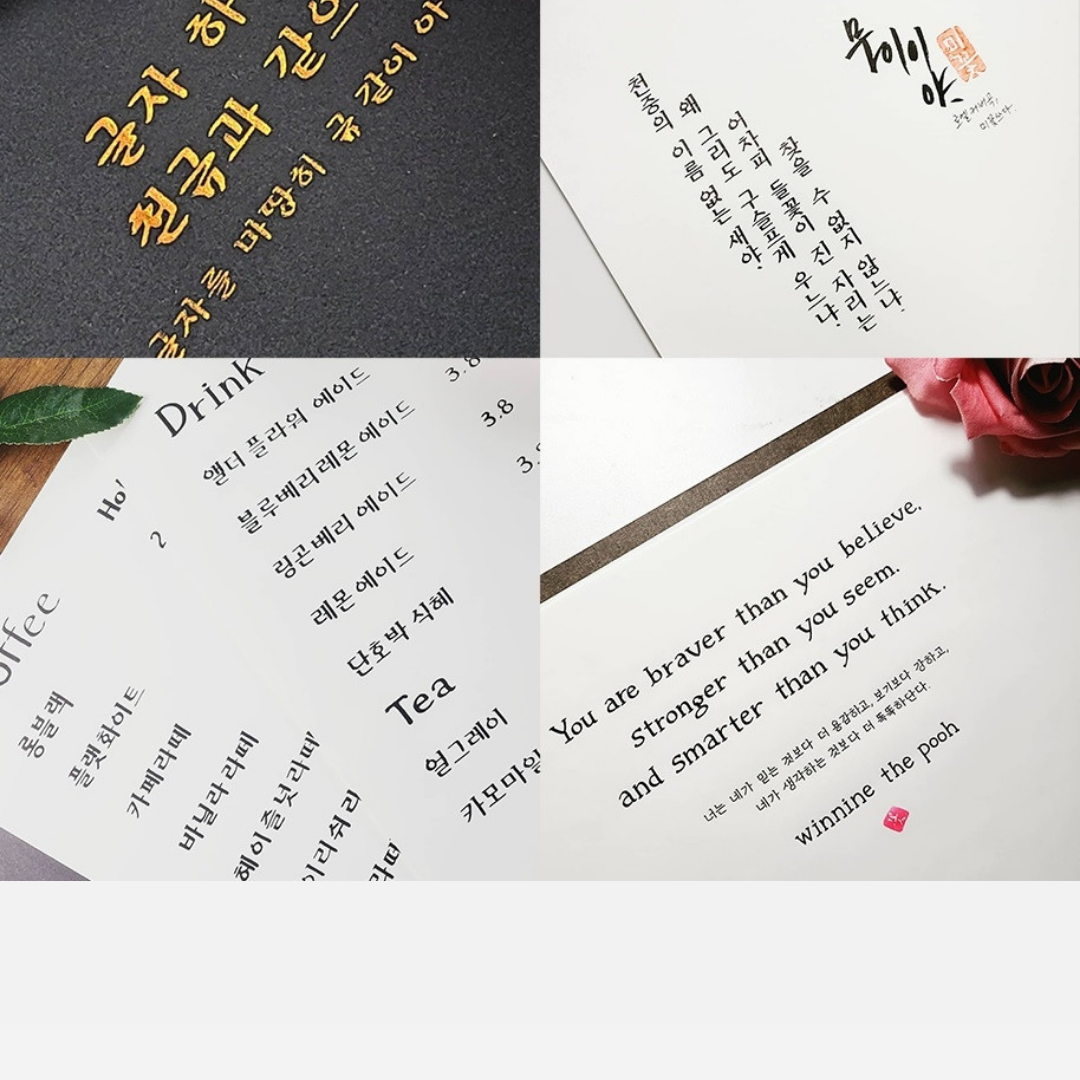 글자 하
천금과 같으
글자를 마땅히 금 같이 아
천중의 이름 없는 새야.
왜 그리도 구슬프게 우느냐.
어차피 들꽃이 진 자리는
찾을 수 없지 않느냐.
Drink
앨더 플라워 에이드 3.8
블루베리레몬 에이드 3.8
링곤베리 에이드
레몬 에이드
단호박 식혜
Tea
얼그레이
카모마일
Ho
2
offee
롱블랙
플랫화이트
카페라떼
바닐라라떼
헤이즐넛라떠
이리쉬리
라떠
You are braver than you believe,
stronger than you seem.
and smarter than you think.
너는 네가 믿는 것보다 더 용감하고, 보기보다 강하고,
네가 생각하는 것보다 더 똑똑하단다.
winnine the pooh